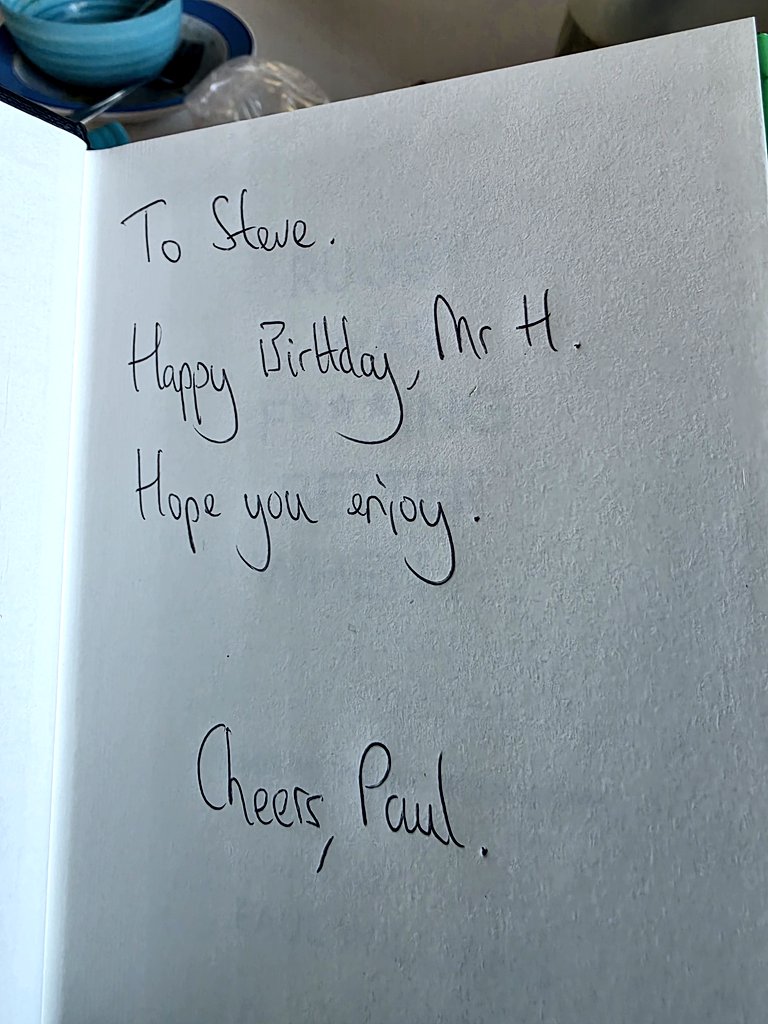 To Steve.
Happy Birthday, Mr H.
Hope you enjoy.
Cheers, Paul.